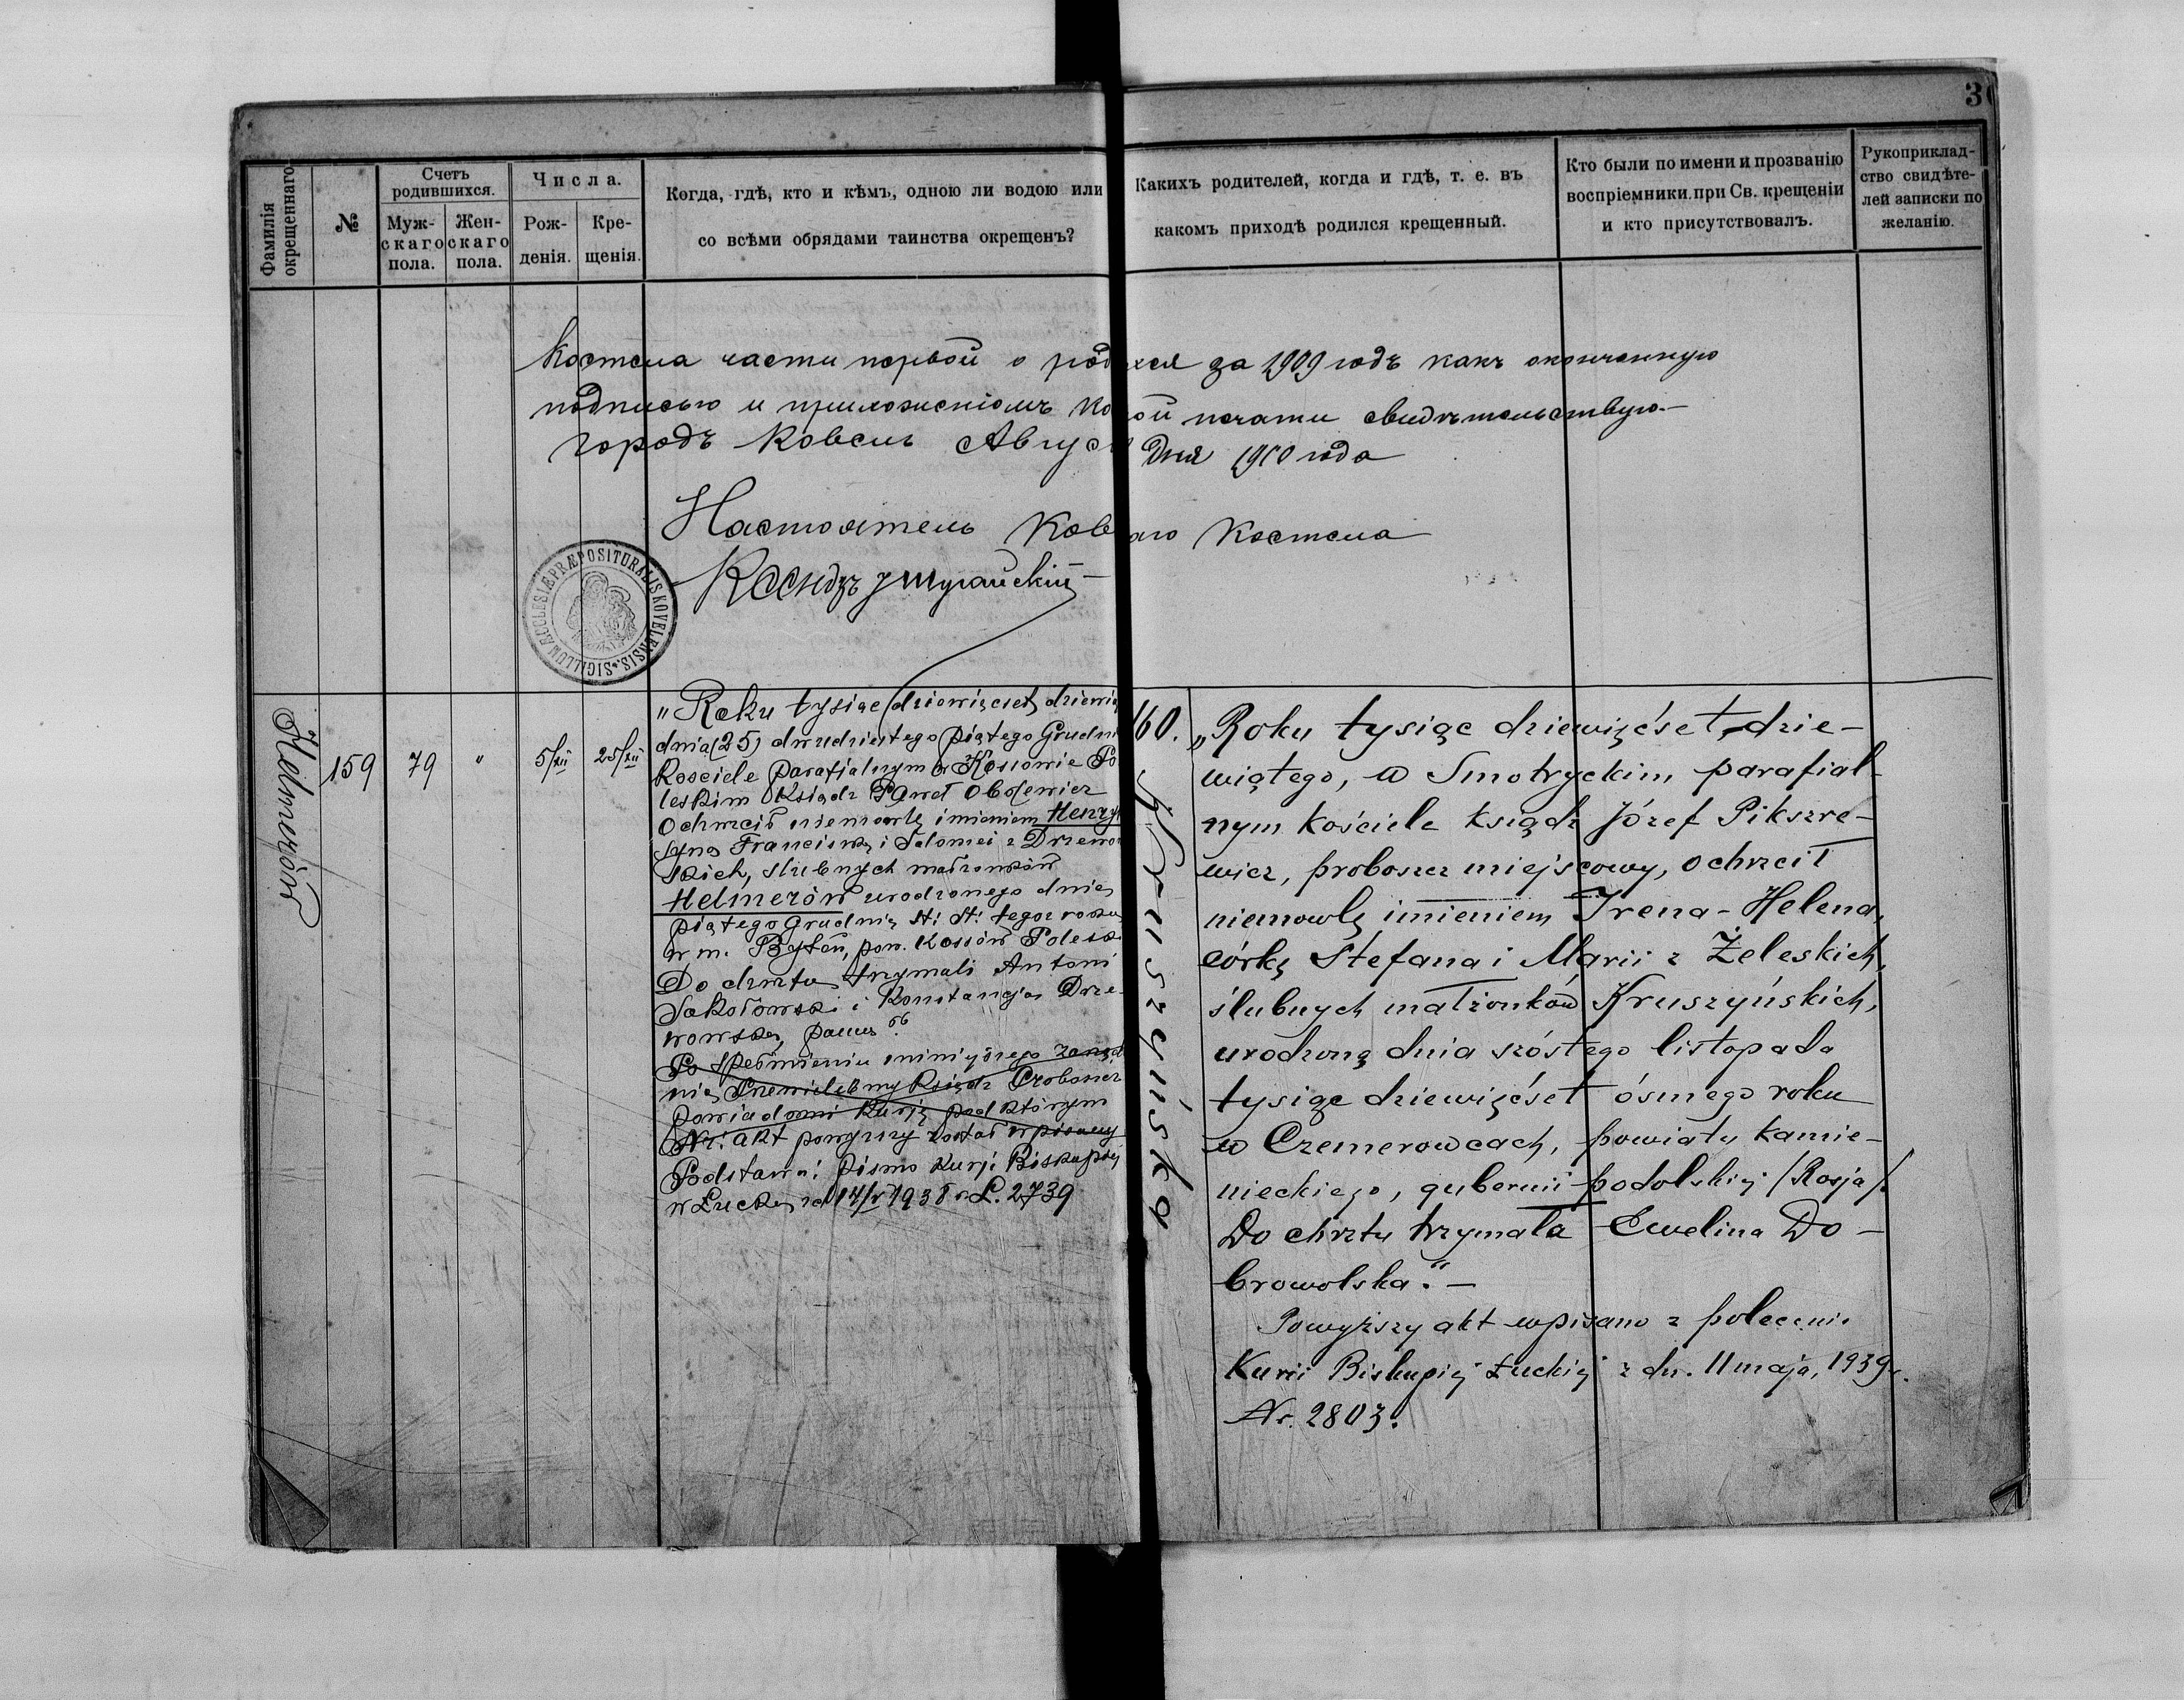 3
Фамилія окрещеннаго
№
Счетъ родившихся.
Муж- скаго пола.
Жен- скаго пола.
Числа.
Рож- денія.
Кре- щенія.
Когда, гдѣ, кто и кѣмъ, одною ли водою или
со всѣми обрядами таинства окрещенъ?
Какихъ родителей, когда и гдѣ, т. е. въ
какомъ приходѣ родился крещенный.
Кто были по имени и прозванію
воспріемники при Св. крещеніи
и кто присутствовалъ.
Рукоприклад-
ство свидѣте-
лей записки по
желанію.
Костела части первой о род хся за 1909 годъ какъ оконченную
подписью и приложеніемъ ко ой печати свидѣтельствую.—
городъ Ковель Август дня 1910 года
Настоятель Ков аго Костела
Ксендзъ
SIGILLUM ECCLESIÆ PRÆPOSITURALIS KOVELENSIS
Helmerów
159
79
"
5/XII
25/XII
„Roku tysiąc dziewięćset dziewią
dnia (25) dwudziestego piątego Grudni
Kościele parafialnym w Kosowie Po
leskim Ksiądz Paweł Obolewicz
Ochrzcił niemowlę imieniem Henryk
syna Franciszka i Salomei z Drzewo
skich, ślubnych małżonków
Helmerów urodzonego dnia
piątego Grudnia st: st: tegoż roku
w m. Byteń, pow. Kossów Polesk
Do chrztu trzymali Antoni
Sokołowski i Konstancja Drze-
wowska, panna".
Po spełnieniu niniejszego zarząd
nia Przewielebny Ksiądz Proboszcz
powiadomi Kurję pod którym
Nr: akt powyższy został wpisany
Podstawa: pismo Kurji Biskupiej
w Łucku z d 17/V 1938 r L. 2739
160.
Kruszyńska
„Roku tysiąc dziewięćset dzie-
wiątego, w Smotryckim parafial-
nym kościele ksiądz Józef Pikszre-
wicz, proboszcz miejscowy, ochrzcił
niemowlę imieniem Irena-Helena,
córkę Stefana i Marii z Żeleskich,
ślubnych małżonków Kruszyńskich,
urodzoną dnia szóstego listopada
tysiąc dziewięćset ósmego roku
w Czemerowcach, powiatu kamie-
nieckiego, gubernii podolskiej /Rosja/.
Do chrztu trzymała Ewelina Do-
browolska."—
Powyższy akt wpisano z polecenia
Kurii Biskupiej Łuckiej z dn. 11 maja, 1939 r.
Nr. 2803.